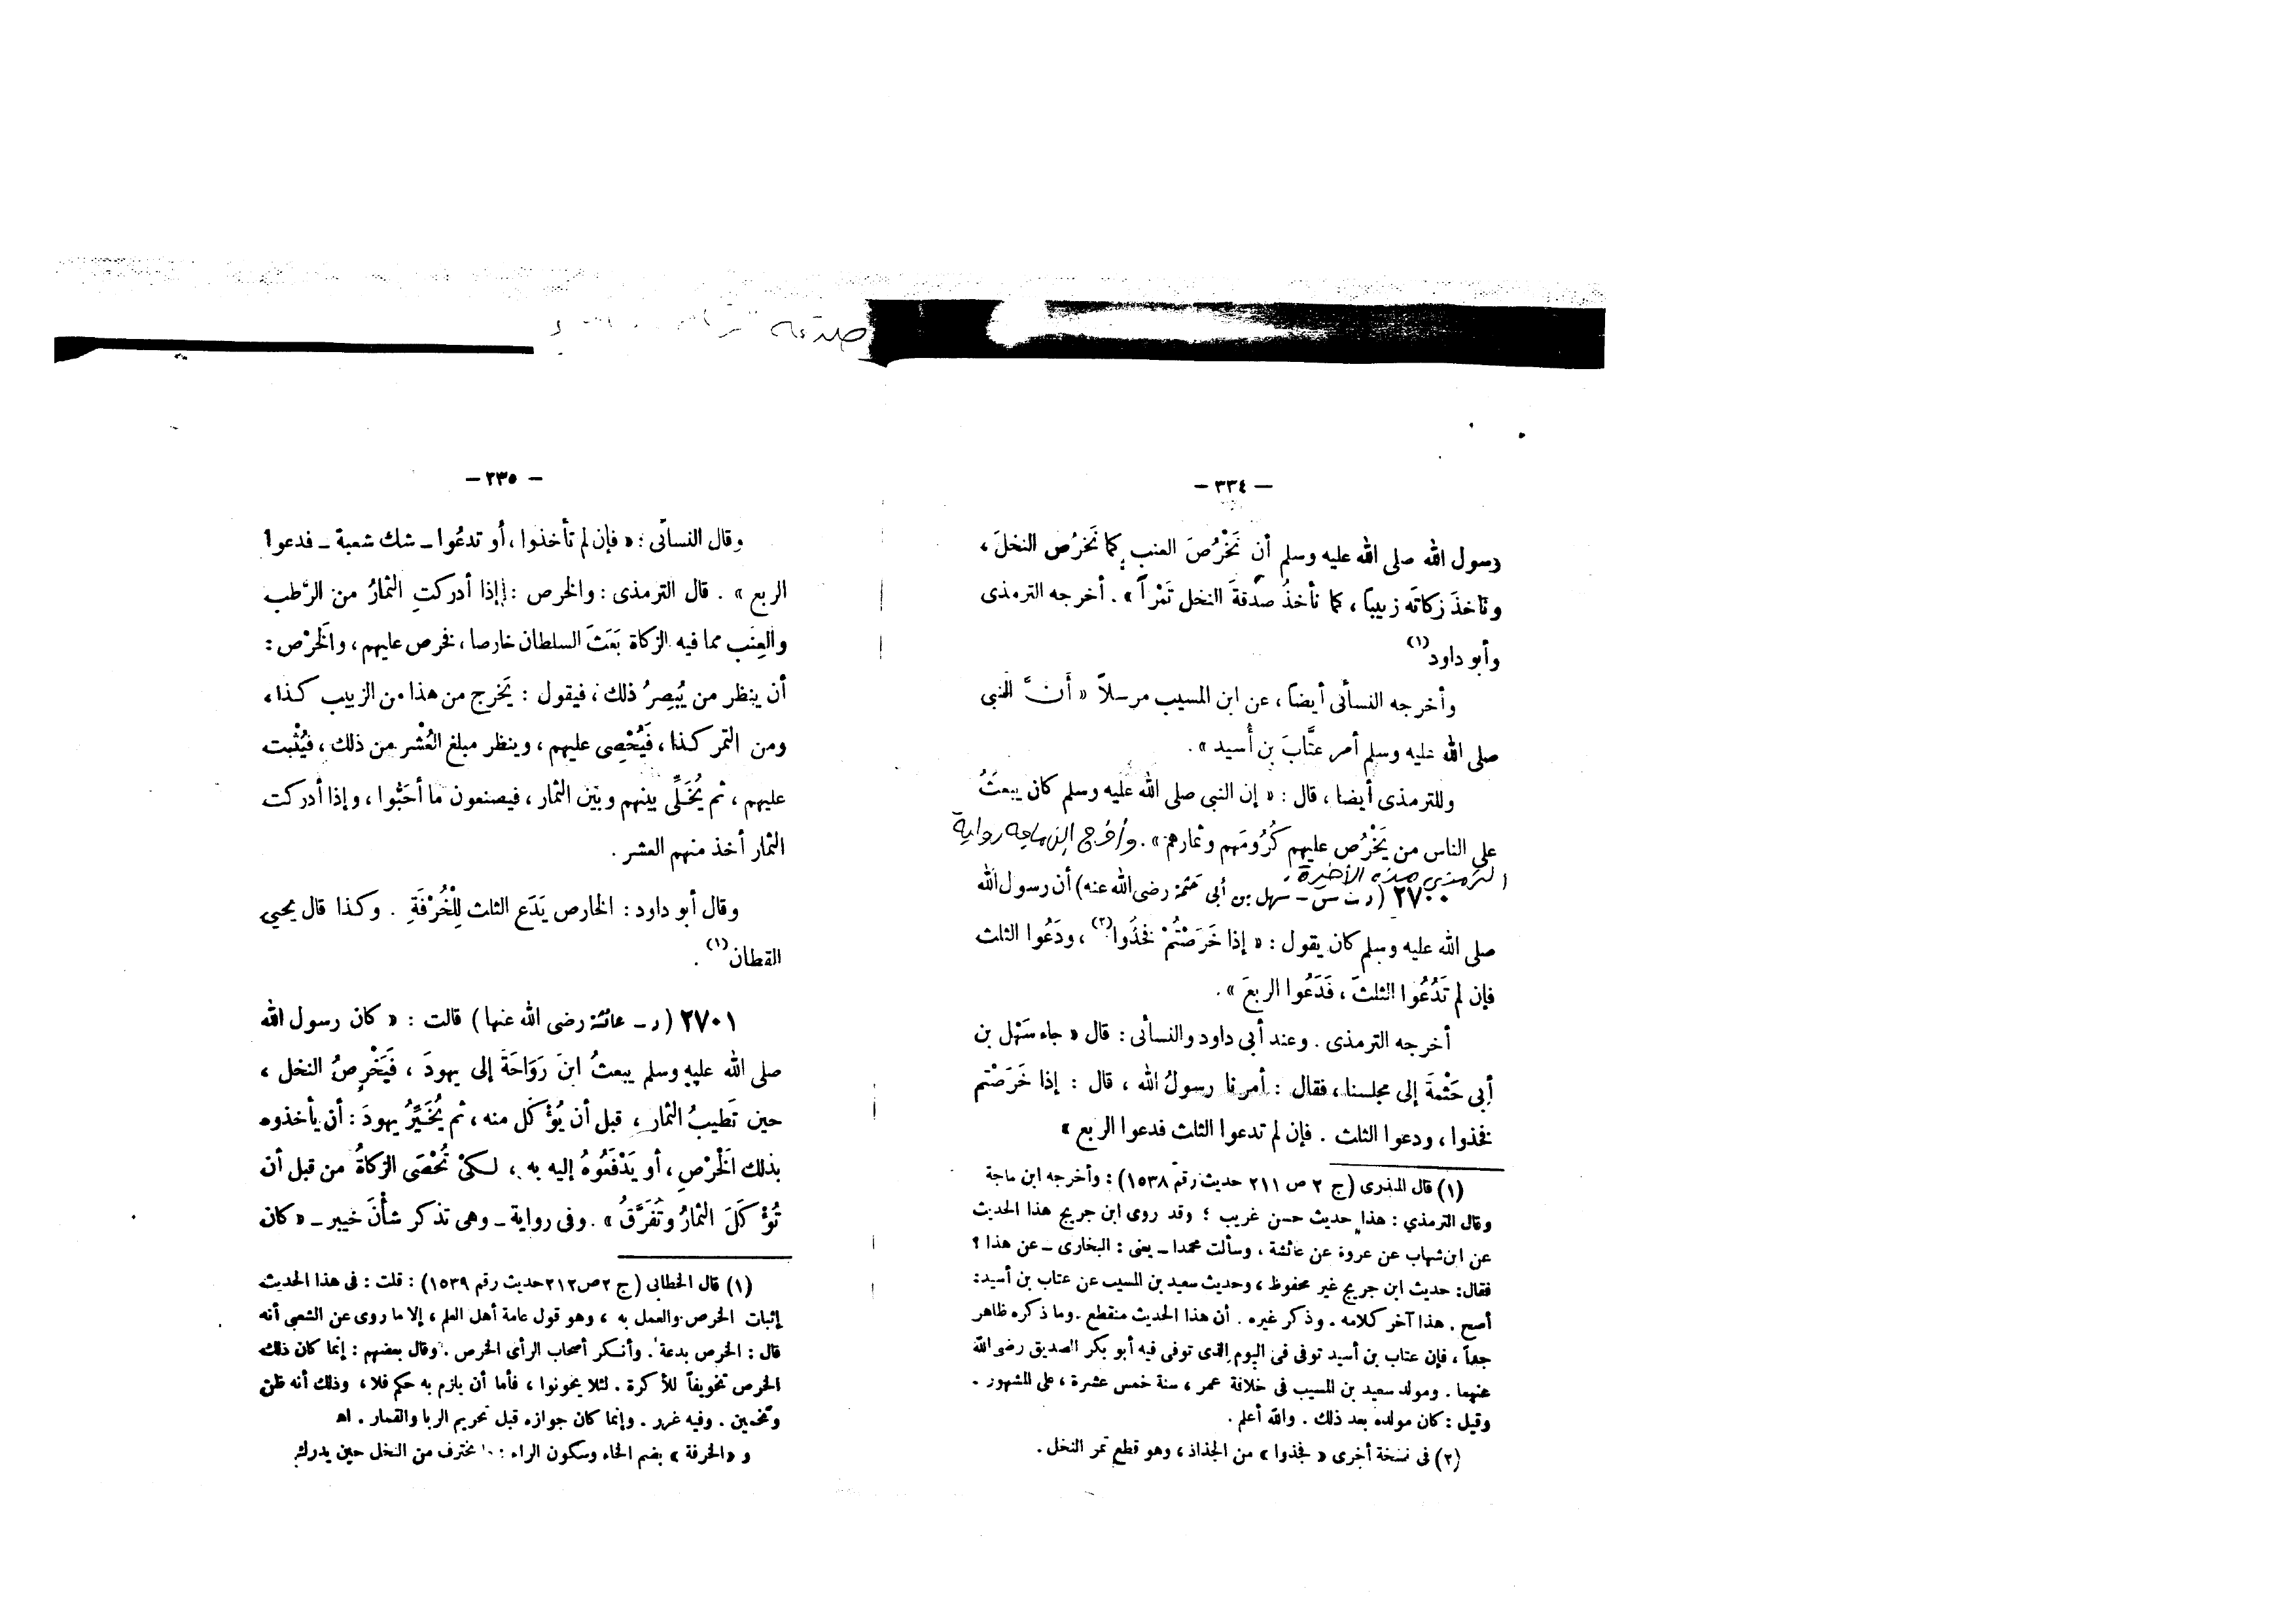 صدقة
— ٣٣٤ —
رسول الله صلى الله عليه وسلم أن نَخْرُصَ العنب كما نَخرُص النخلَ ،
ونأخذَ زكاتَه زبيباً ، كما نأخذُ صدقةَ النخل تَمْراً » . أخرجه الترمذى
وأبو داود (١)
وأخرجه النسأئى أيضاً ، عن ابن المسيب مرسلاً « أَنَّ النبى
صلى الله عليه وسلم أمر عتَّابَ بن أُسيد » .
وللترمذى أيضا ، قال : « إن النبى صلى الله عليه وسلم كان يبعثُ
على الناس من يَخْرُص عليهم كُرُومَهم وثمارهم » . وأخرج ابن ماجه رواية
الترمذي هذه الأخيرة .
٢٧٠٠ ( د ت س – سهل بن أبى حَثمة رضى الله عنه ) أن رسول الله
صلى الله عليه وسلم كان يقول : « إذا خَرَصْتُمْ فخذُوا (٢) ، ودَعُوا الثلث
فإن لم تَدَعُوا الثلثَ ، فَدَعُوا الربعَ » .
أخرجه الترمذى . وعند أبى داود والنسأئى : قال « جاء سَهْل بن
أبى حَثْمةَ إلى مجلسنا ، فقال : أمرنا رسولُ الله ، قال : إذا خَرَصْتم
فخذوا ، ودعوا الثلث . فإن لم تدعوا الثلث فدعوا الربع »
(١) قال المنذرى ( ج ٢ ص ٢١١ حديث رقم ١٥٣٨ ) : وأخرجه ابن ماجة
وقال الترمذي : هذا حديث حسن غريب ؛ وقد روى ابن جريج هذا الحديث
عن ابن شهاب عن عروة عن عائشة ، وسألت محمدا – يعنى : البخارى – عن هذا ؟
فقال : حديث ابن جريج غير محفوظ ، وحديث سعيد بن المسيب عن عتاب بن أسيد :
أصح . هذا آخر كلامه . وذكر غيره . أن هذا الحديث منقطع . وما ذكره ظاهر
جداً ، فإن عتاب بن أسيد توفى فى اليوم الذى توفى فيه أبو بكر الصديق رضى الله
عنهما . ومولد سعيد بن المسيب فى خلافة عمر ، سنة خمس عشرة ، على المشهور .
وقيل : كان مولده بعد ذلك . والله أعلم .
(٢) فى نسخة أخرى « فجذوا » من الجذاذ ، وهو قطع ثمر النخل .
— ٣٣٥ —
وقال النسأئى : « فإن لم تأخذوا ، أو تدعُوا – شك شعبة – فدعوا
الربع » . قال الترمذى : والخرص : إذا أدركتِ الثمارُ من الرُّطب
والعِنَب مما فيه الزكاة بَعَثَ السلطان خارصا ، فخرص عليهم ، والَخرْص :
أن ينظر من يُبصِرُ ذلك ، فيقول : يَخرج من هذا من الزبيب كذا ،
ومن التمر كذا ، فَيُحْصِى عليهم ، وينظر مبلغ العُشْر من ذلك ، فيُثْبت
عليهم ، ثم يُخَلِّى بينهم وبَيْن الثمار ، فيصنعون ما أحَبُّوا ، وإذا أدركت
الثمار أخذ منهم العشر .
وقال أبو داود : الخارص يَدَع الثلث لِلْخُرْفَةِ . وكذا قال يحيى
القطان (١) .
٢٧٠١ ( د – عائشة رضى الله عنها ) قالت : « كان رسول الله
صلى الله عليه وسلم يبعثُ ابنَ رَوَاحَةَ إلى يهودَ ، فَيَخْرِصُ النخل ،
حين تَطيبُ الثمار ، قبل أن يُؤْكَل منه ، ثم يُخَيِّرُ يهودَ : أن يأخذوه
بذلك الَخْرْصِ ، أو يَدْفَعُوهُ إليه به ، لكىْ تُحْصَى الزكاةُ من قبل أن
تُؤْكَلَ الثمارُ وتُفَرَّقُ » . وفى رواية – وهى تذكر شأْنَ خيبر – « كان
(١) قال الخطابى ( ج ٢ ص ٢١٢ حديث رقم ١٥٣٩ ) : قلت : فى هذا الحديث
إثبات الخرص والعمل به ، وهو قول عامة أهل العلم ، إلا ما روى عن الشعبى أنه
قال : الخرص بدعة . وأنكر أصحاب الرأى الخرص . وقال بعضهم : إنما كان ذلك
الخرص تخويفاً للأكرة . لئلا يخونوا ، فأما أن يلزم به حكم فلا ، وذلك أنه ظن
وتخمين . وفيه غرر . وإنما كان جوازه قبل تحريم الربا والقمار . اه
و « الخرفة » بضم الخاء وسكون الراء : ما يخترف من النخل حين يدرك